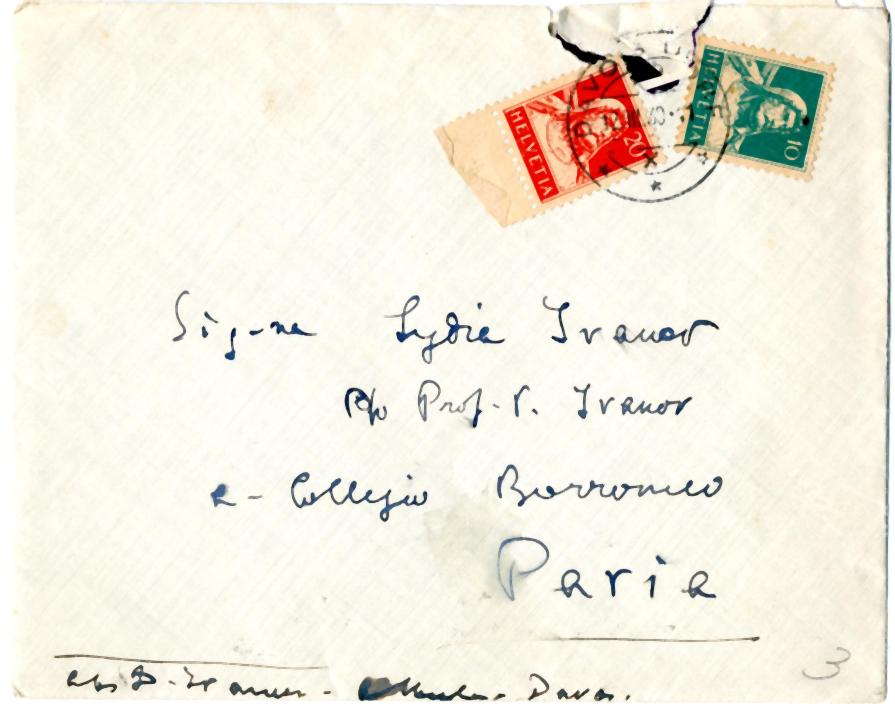 HELVETIA 20
HELVETIA 10
DAVOS
Sig-na Lydia Ivanov
P/o Prof. V. Ivanov
a - Collegio Borromeo
Pavia
D. Ivanov - Davos.
3